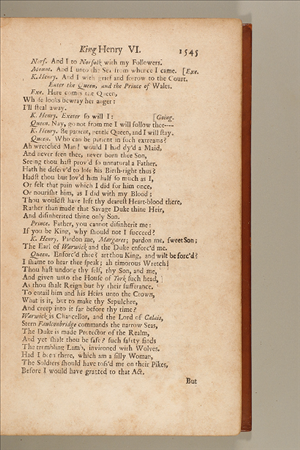 King Henry VI. 1545
Norf. And I to Norfolk with my Followers.
Mount. And I unto the Sea from whence I came. [Exe.
K. Henry. And I with grief and sorrow to the Court.
Enter the Queen, and the Prince of Wales.
Exe. Here comes the Queen,
Whose looks bewray her anger:
I'll steal away.
K. Henry. Exeter so will I: [Going.
Queen. Nay, go not from me I will follow thee——
K. Henry. Be patient, gentle Queen, and I will stay.
Queen. Who can be patient in such extreams?
Ah wretched Man! would I had dy'd a Maid,
And never seen thee, never born thee Son,
Seeing thou hast prov'd so unnatural a Father.
Hath he deserv'd to lose his Birth-right thus?
Hadst thou but lov'd him half so much as I,
Or felt that pain which I did for him once,
Or nourisht him, as I did with my Blood:
Thou wouldst have left thy dearest Heart-blood there,
Rather than made that Savage Duke thine Heir,
And disinherited thine only Son.
Prince. Father, you cannot disinherit me:
If you be King, why should not I succeed?
K. Henry. Pardon me, Margaret; pardon me, sweet Son;
The Earl of Warwick and the Duke enforc'd me.
Queen. Enforc'd thee? art thou King, and wilt be forc'd?
I shame to hear thee speak; ah timorous Wretch!
Thou hast undone thy self, thy Son, and me,
And given unto the House of York such head,
As thou shalt Reign but by their sufferance.
To entail him and his Heirs unto the Crown,
What is it, but to make thy Sepulcher,
And creep into it far before thy time?
Warwick is Chancellor, and the Lord of Calais,
Stern Faulconbridge commands the narrow Seas,
The Duke is made Protector of the Realm,
And yet shalt thou be safe? such safety finds
The trembling Lamb, invironed with Wolves.
Had I been there, which am a silly Woman,
The Soldiers should have toss'd me on their Pikes,
Before I would have granted to that Act.
But